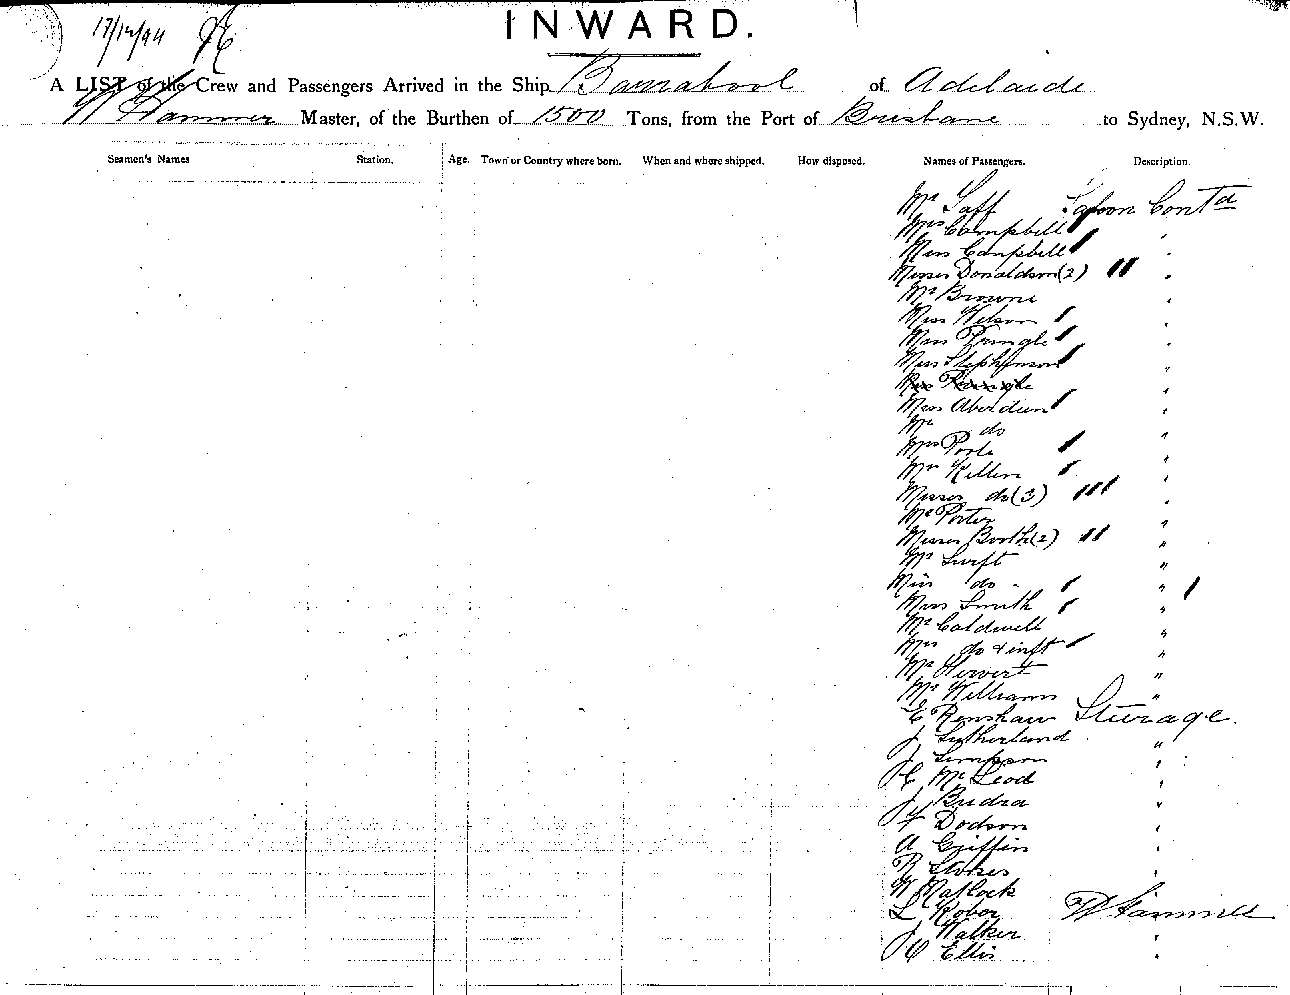 17/12/94
INWARD.
A LIST of the Crew and Passengers Arrived in the Ship Barrabool of Adelaide
W Hammer Master, of the Burthen of 1500 Tons, from the Port of Brisbane to Sydney, N.S.W.
Seamen's Names Station. Age. Town or Country where born. When and where shipped. How disposed. Names of Passengers. Description.
Mr Saloon Contd
Mrs Campbell "
Miss Campbell "
Misses Donaldson (2) "
Mr Browne "
Miss Wilson "
Miss Pringle "
Miss Stephenson "
Miss Aberdien "
Mr do "
Mrs Poole "
Mrs Killen "
Misses do (3) "
Mr Porter "
Misses Booth (2) "
Mr Swift "
Miss do "
Miss Smith "
Mr Caldwell "
Mrs do & inft "
Mr "
Mr Williams "
E Renshaw Sturage.
J Sutherland "
J Simpson "
C McLeod "
J "
F Dodson "
A Griffin "
R Stokes "
W Matlock
L Kober
J Walker "
C Ellis "